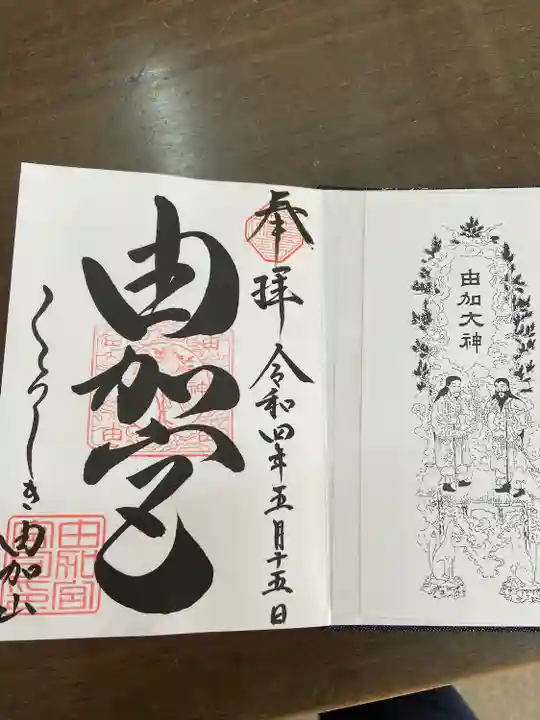 由加大神
奉拝
令和四年五月十五日
由加宮
くらしき
由加山